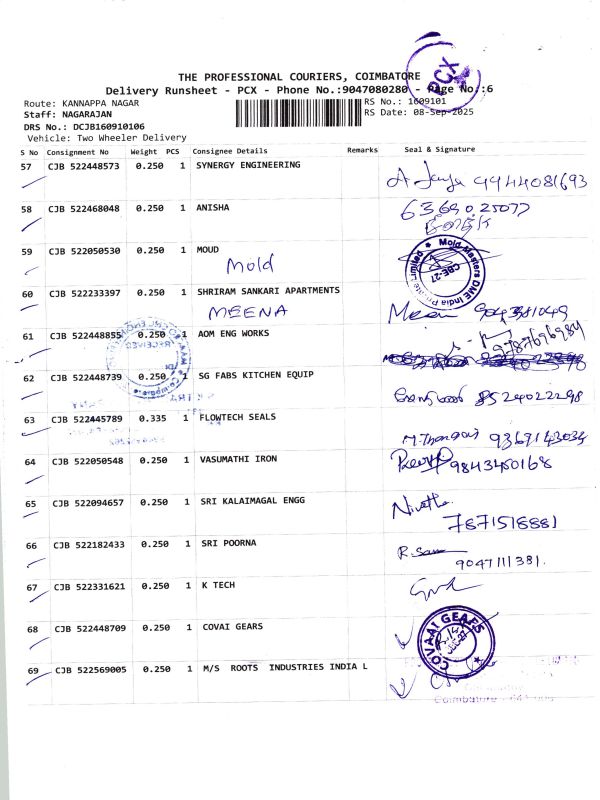 THE PROFESSIONAL COURIERS, COIMBATORE
PCX
Delivery Runsheet - PCX - Phone No.:9047080280 - Page No.:6
Route: KANNAPPA NAGAR
RS No.: 1609101
Staff: NAGARAJAN
RS Date: 08-Sep-2025
DRS No.: DCJB160910106
Vehicle: Two Wheeler Delivery
S No Consignment No Weight PCS Consignee Details Remarks Seal & Signature
57 CJB 522448573 0.250 1 SYNERGY ENGINEERING
9944081693
58 CJB 522468048 0.250 1 ANISHA
6369025077
59 CJB 522050530 0.250 1 MOUD
Mold
Mold-Masters DME India Private Limited
CBE-27
60 CJB 522233397 0.250 1 SHRIRAM SANKARI APARTMENTS
MEENA
Meen
61 CJB 522448855 0.250 1 AOM ENG WORKS
9787696984
RECEIVED
62 CJB 522448739 0.250 1 SG FABS KITCHEN EQUIP
8524022298
63 CJB 522445789 0.335 1 FLOWTECH SEALS
9367143034
64 CJB 522050548 0.250 1 VASUMATHI IRON
9843450168
65 CJB 522094657 0.250 1 SRI KALAIMAGAL ENGG
7871518881
66 CJB 522182433 0.250 1 SRI POORNA
9047111381.
67 CJB 522331621 0.250 1 K TECH
68 CJB 522448709 0.250 1 COVAI GEARS
COVAAI GEARS
69 CJB 522569005 0.250 1 M/S ROOTS INDUSTRIES INDIA L
Coimbatore